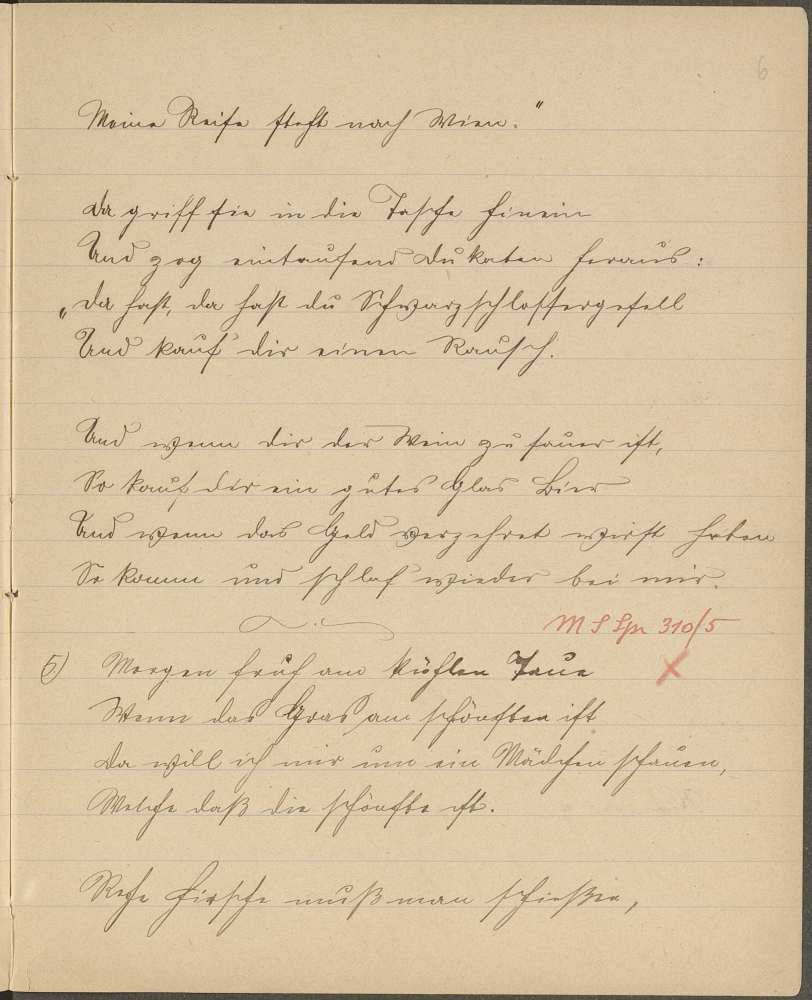 6
Meine Reise steht nach Wien."
Da griff sie in die Tasche hinein
Und zog eintausend Dukaten heraus:
„Da hast, da hast du Schwarzschlossergesell
Und kauf' dir einen Rausch.
Und wenn dir der Wein zu sauer ist,
So kauf dir ein gutes Glas Bier
Und wenn das Geld verzehret wirst haben
So komm und schlaf wieder bei mir.
M S Spr 310/5
5) Morgen früh am kühlen Taue
Wenn das Gras am schönsten ist
Da will ich mir um ein Mädchen schauen,
Welche daß die schönste ist.
Rehe Hirsche muß man schießen,